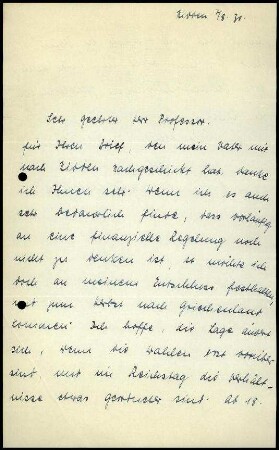 Zirren 4/8 30.
Sehr geehrter Herr Professor.
für Ihren Brief, den mein Vater mir
nach Zirren nachgeschickt hat, danke
ich Ihnen sehr. Wenn ich es auch
sehr bedauerlich finde, dass vorläufig
an eine finanzielle Regelung noch
nicht zu denken ist, so möchte ich
doch an meinem Entschluss festhalten,
mit zum Herbst nach Griechenland
kommen. Ich hoffe, die Lage ändert
sich, wenn die Wahlen erst vorüber
sind, und im Reichstag die Verhält-
nisse etwas geordneter sind. Ab 18.